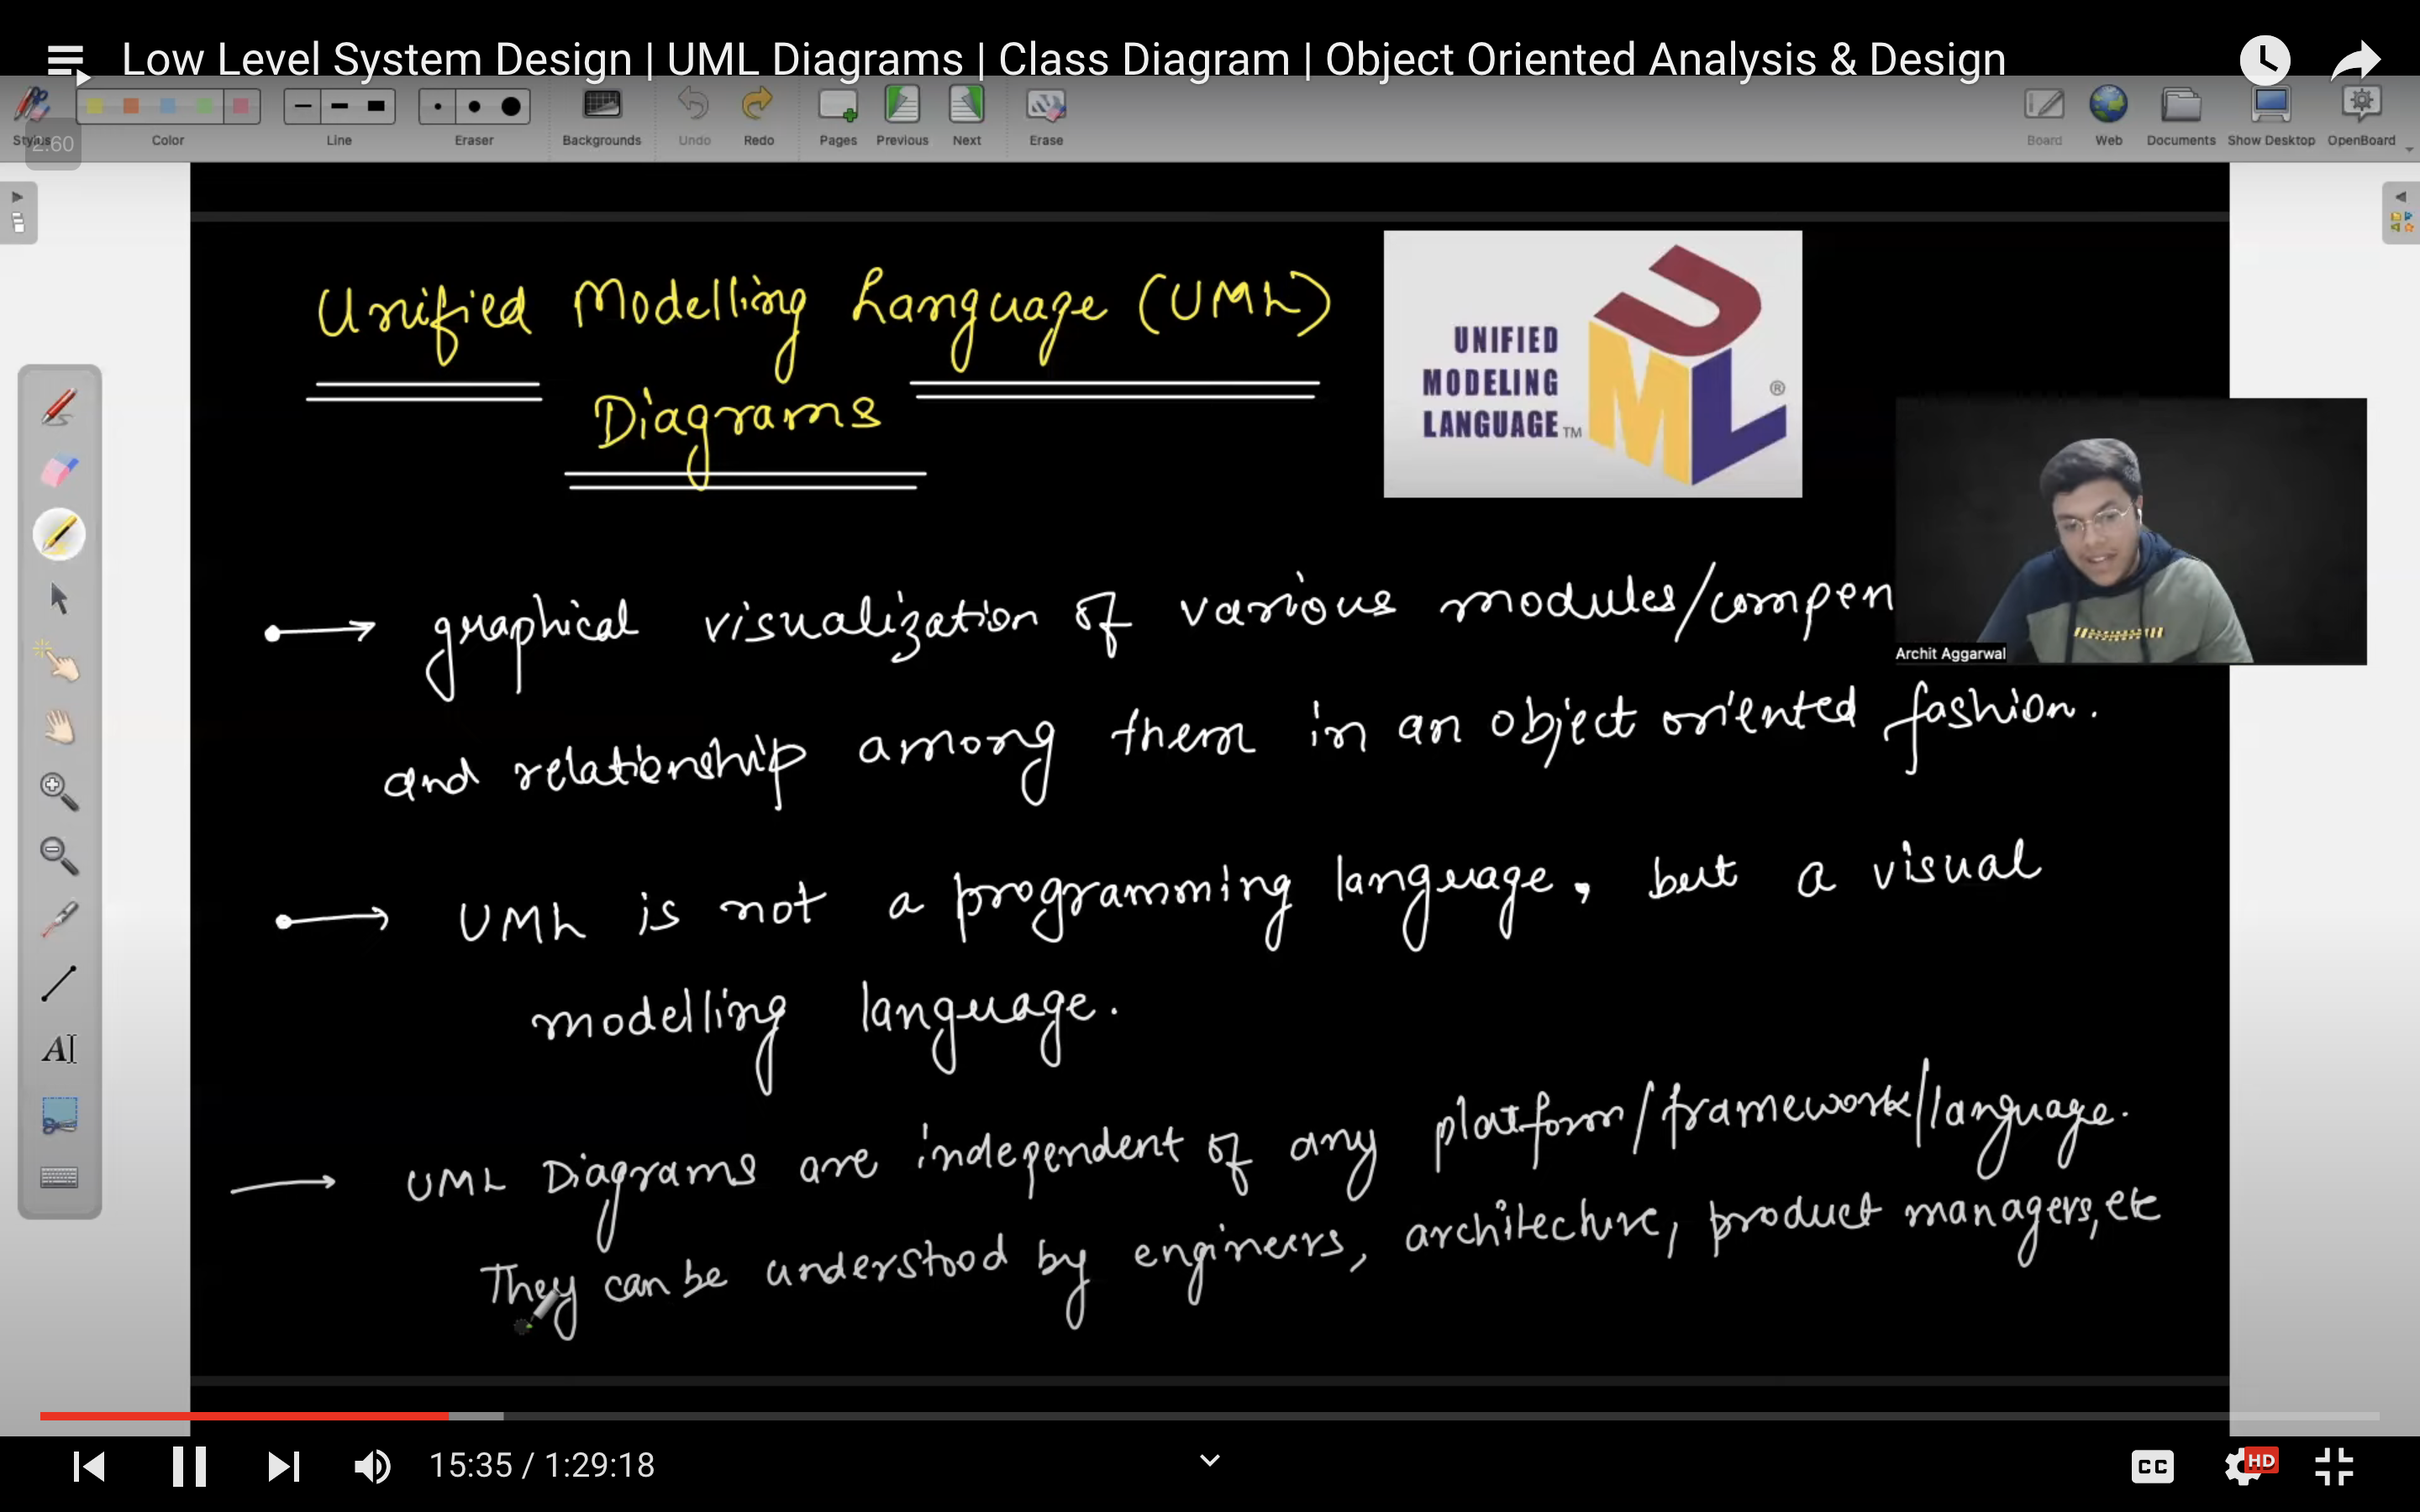 Low Level System Design | UML Diagrams | Class Diagram | Object Oriented Analysis & Design
Stylus
2.60
Color
Line
Eraser
Backgrounds
Undo
Redo
Pages
Previous
Next
Erase
Board
Web
Documents
Show Desktop
OpenBoard
Unified Modelling Language (UML)
Diagrams
UNIFIED
MODELING
LANGUAGE TM
UML ®
graphical visualization of various modules/compen
Archit Aggarwal
and relationship among them in an object oriented fashion.
UML is not a programming language, but a visual
modelling language.
UML Diagrams are independent of any platform/framework/language.
They can be understood by engineers, architecture, product managers, etc
AI
15:35 / 1:29:18
CC
HD